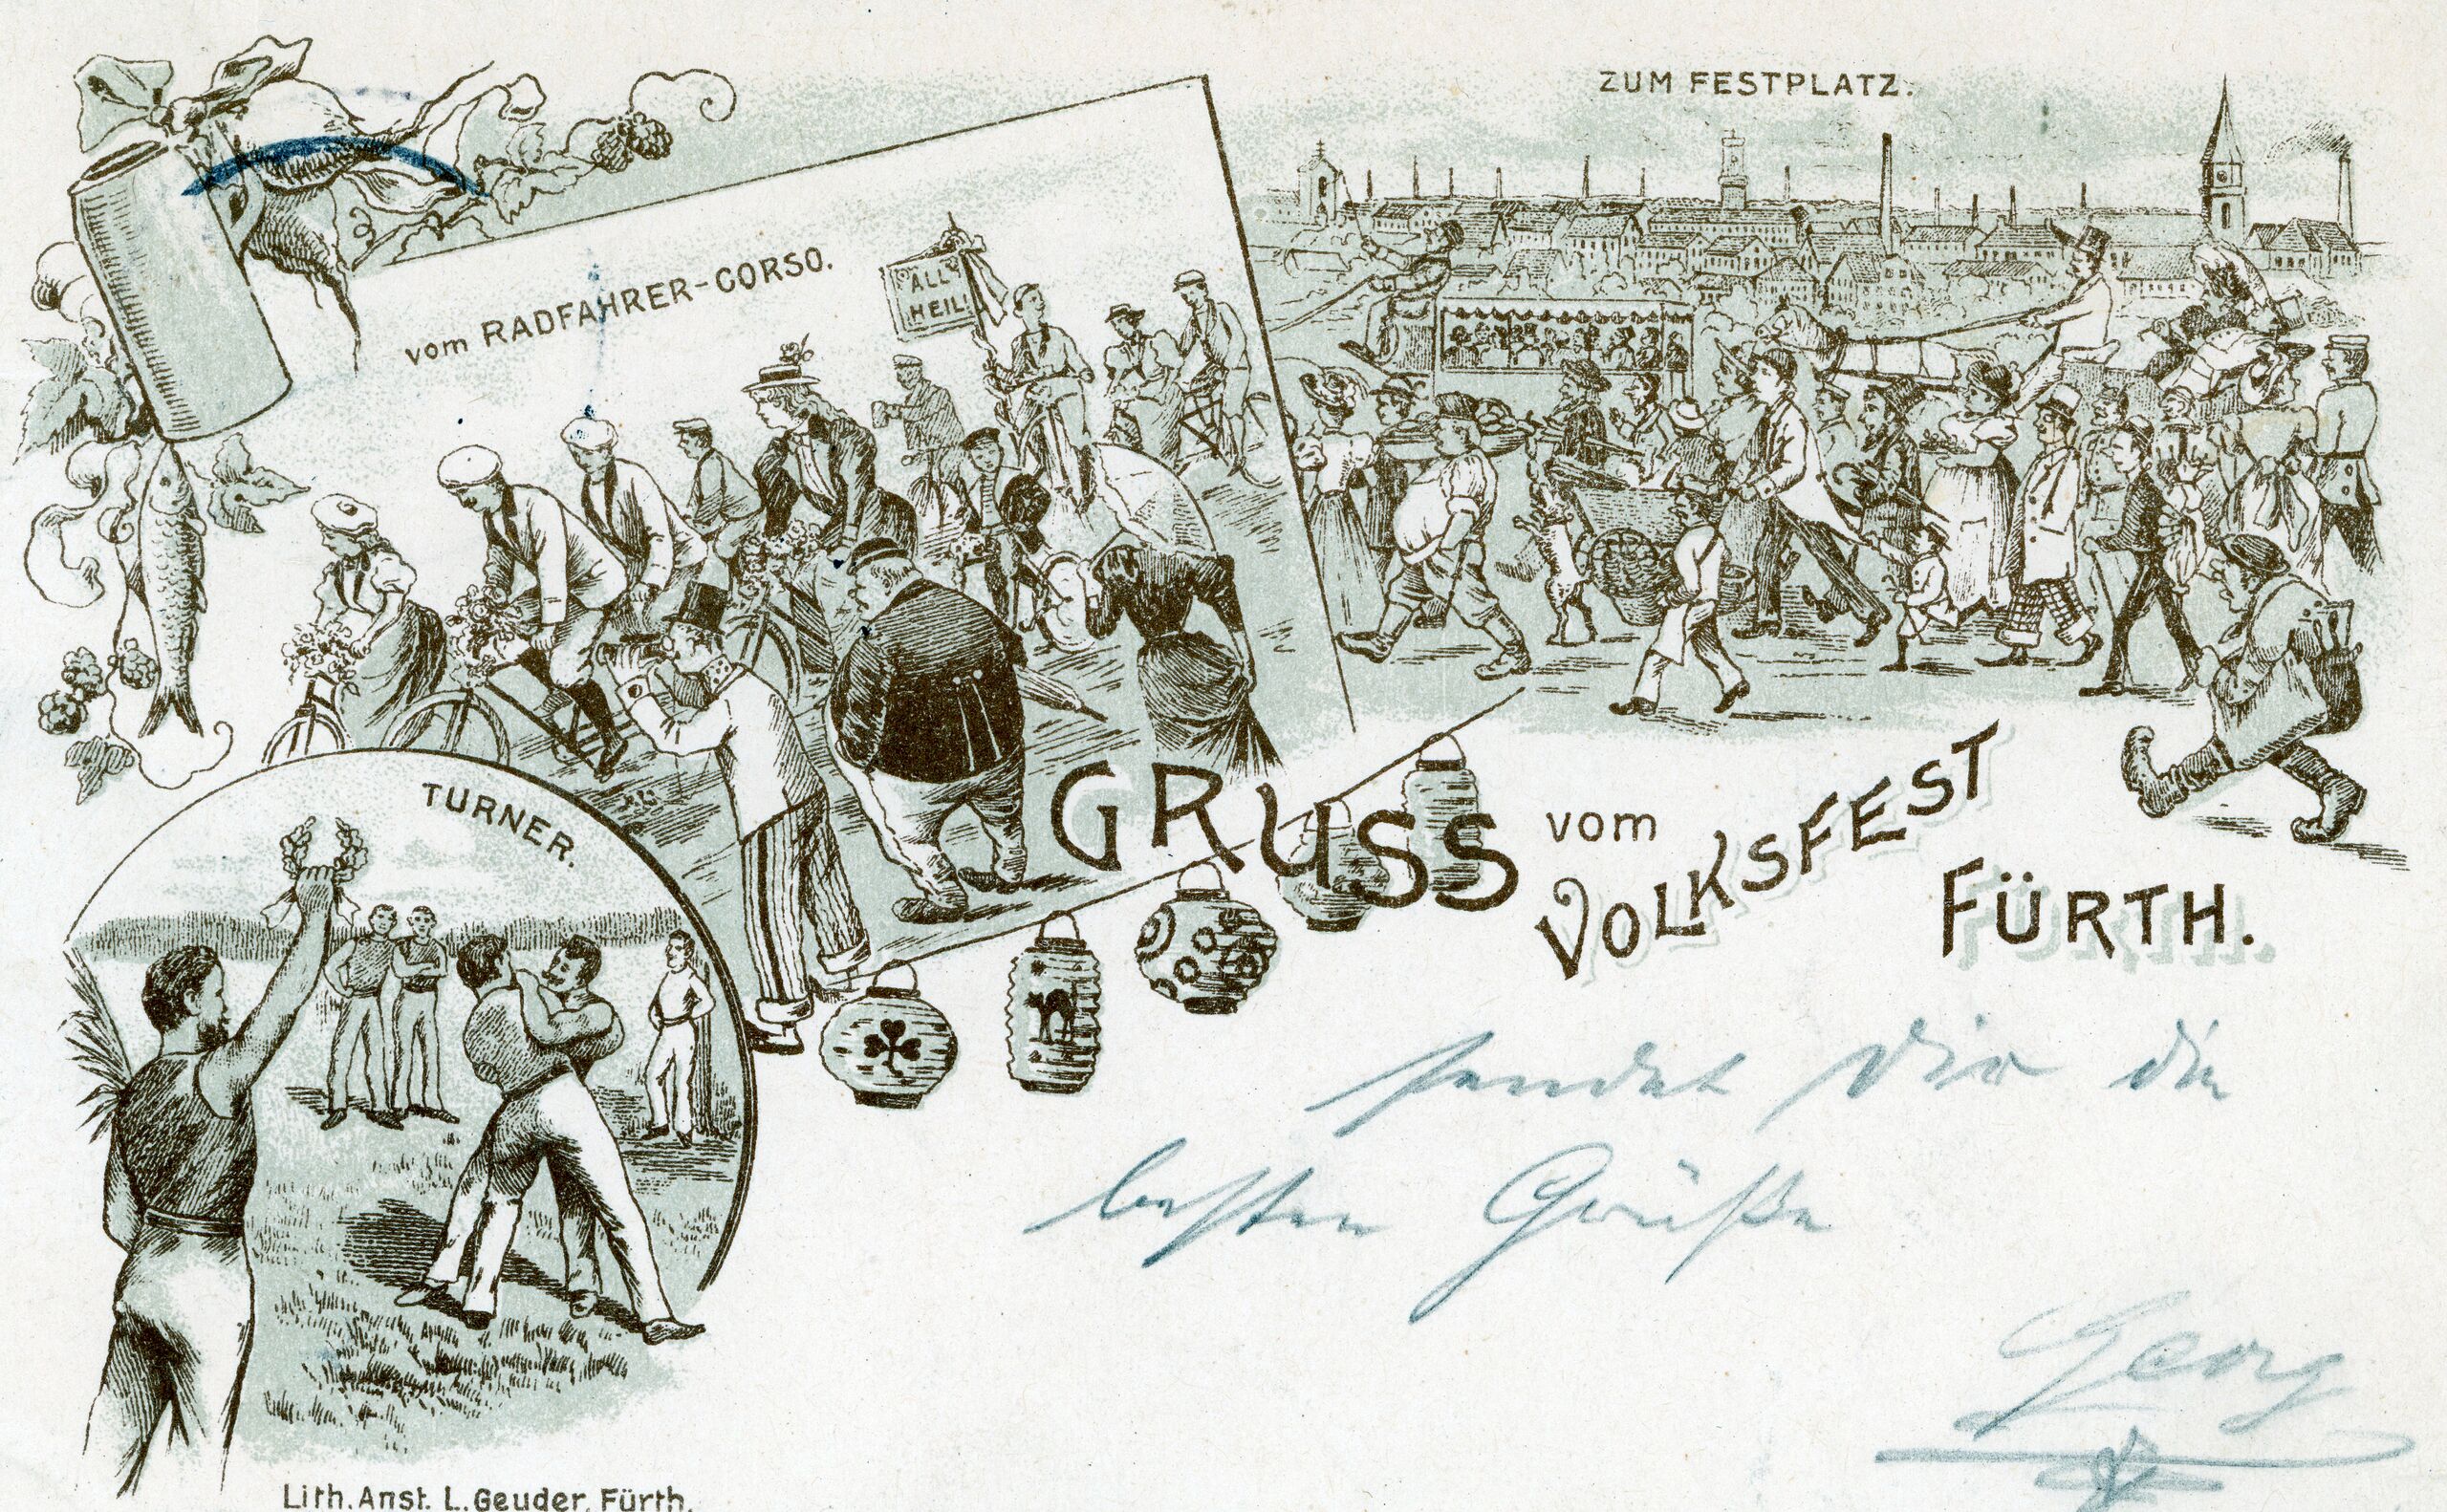 ZUM FESTPLATZ.
vom RADFAHRER-CORSO.
ALL
HEIL!
TURNER.
GRUSS vom VOLKSFEST FÜRTH.
sendet Dir die
besten Grüße
Georg
Lith. Anst. L. Geuder, Fürth.